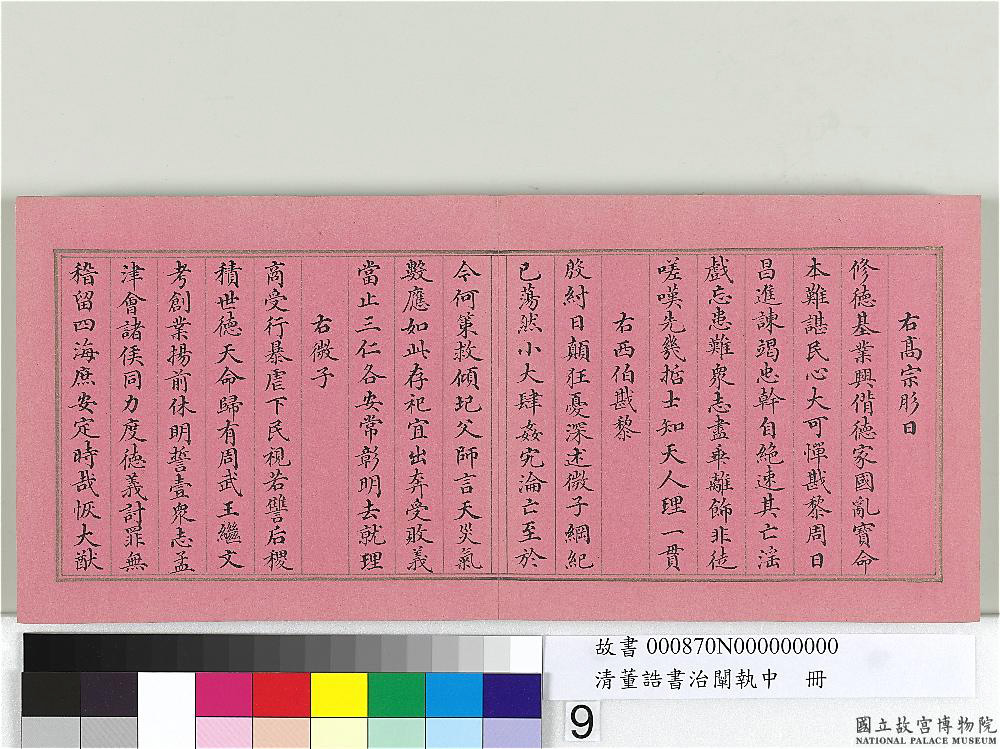 右高宗肜日
修德基業興僭德家國亂寶命
本難諶民心大可憚戡黎周日
昌進諫竭忠幹自絕速其亡淫
戲忘患難眾志盡乖離飾非徒
嗟嘆先幾哲士知天人理一貫
右西伯戡黎
殷紂日顛狂憂深述微子綱紀
已蕩然小大肆姦宄淪亡至於
今何策救傾圮父師言天災氣
數應如此存祀宜出奔受敗義
當止三仁各安常彰明去就理
右微子
商受行暴虐下民視若讐后稷
積世德天命歸有周武王繼文
考創業揚前休明誓壹眾志孟
津會諸侯同力度德義討罪無
稽留四海庶安定時哉恢大猷
故書 000870N000000000
清董誥書治闡執中 冊
9
國立故宮博物院
NATIONAL PALACE MUSEUM